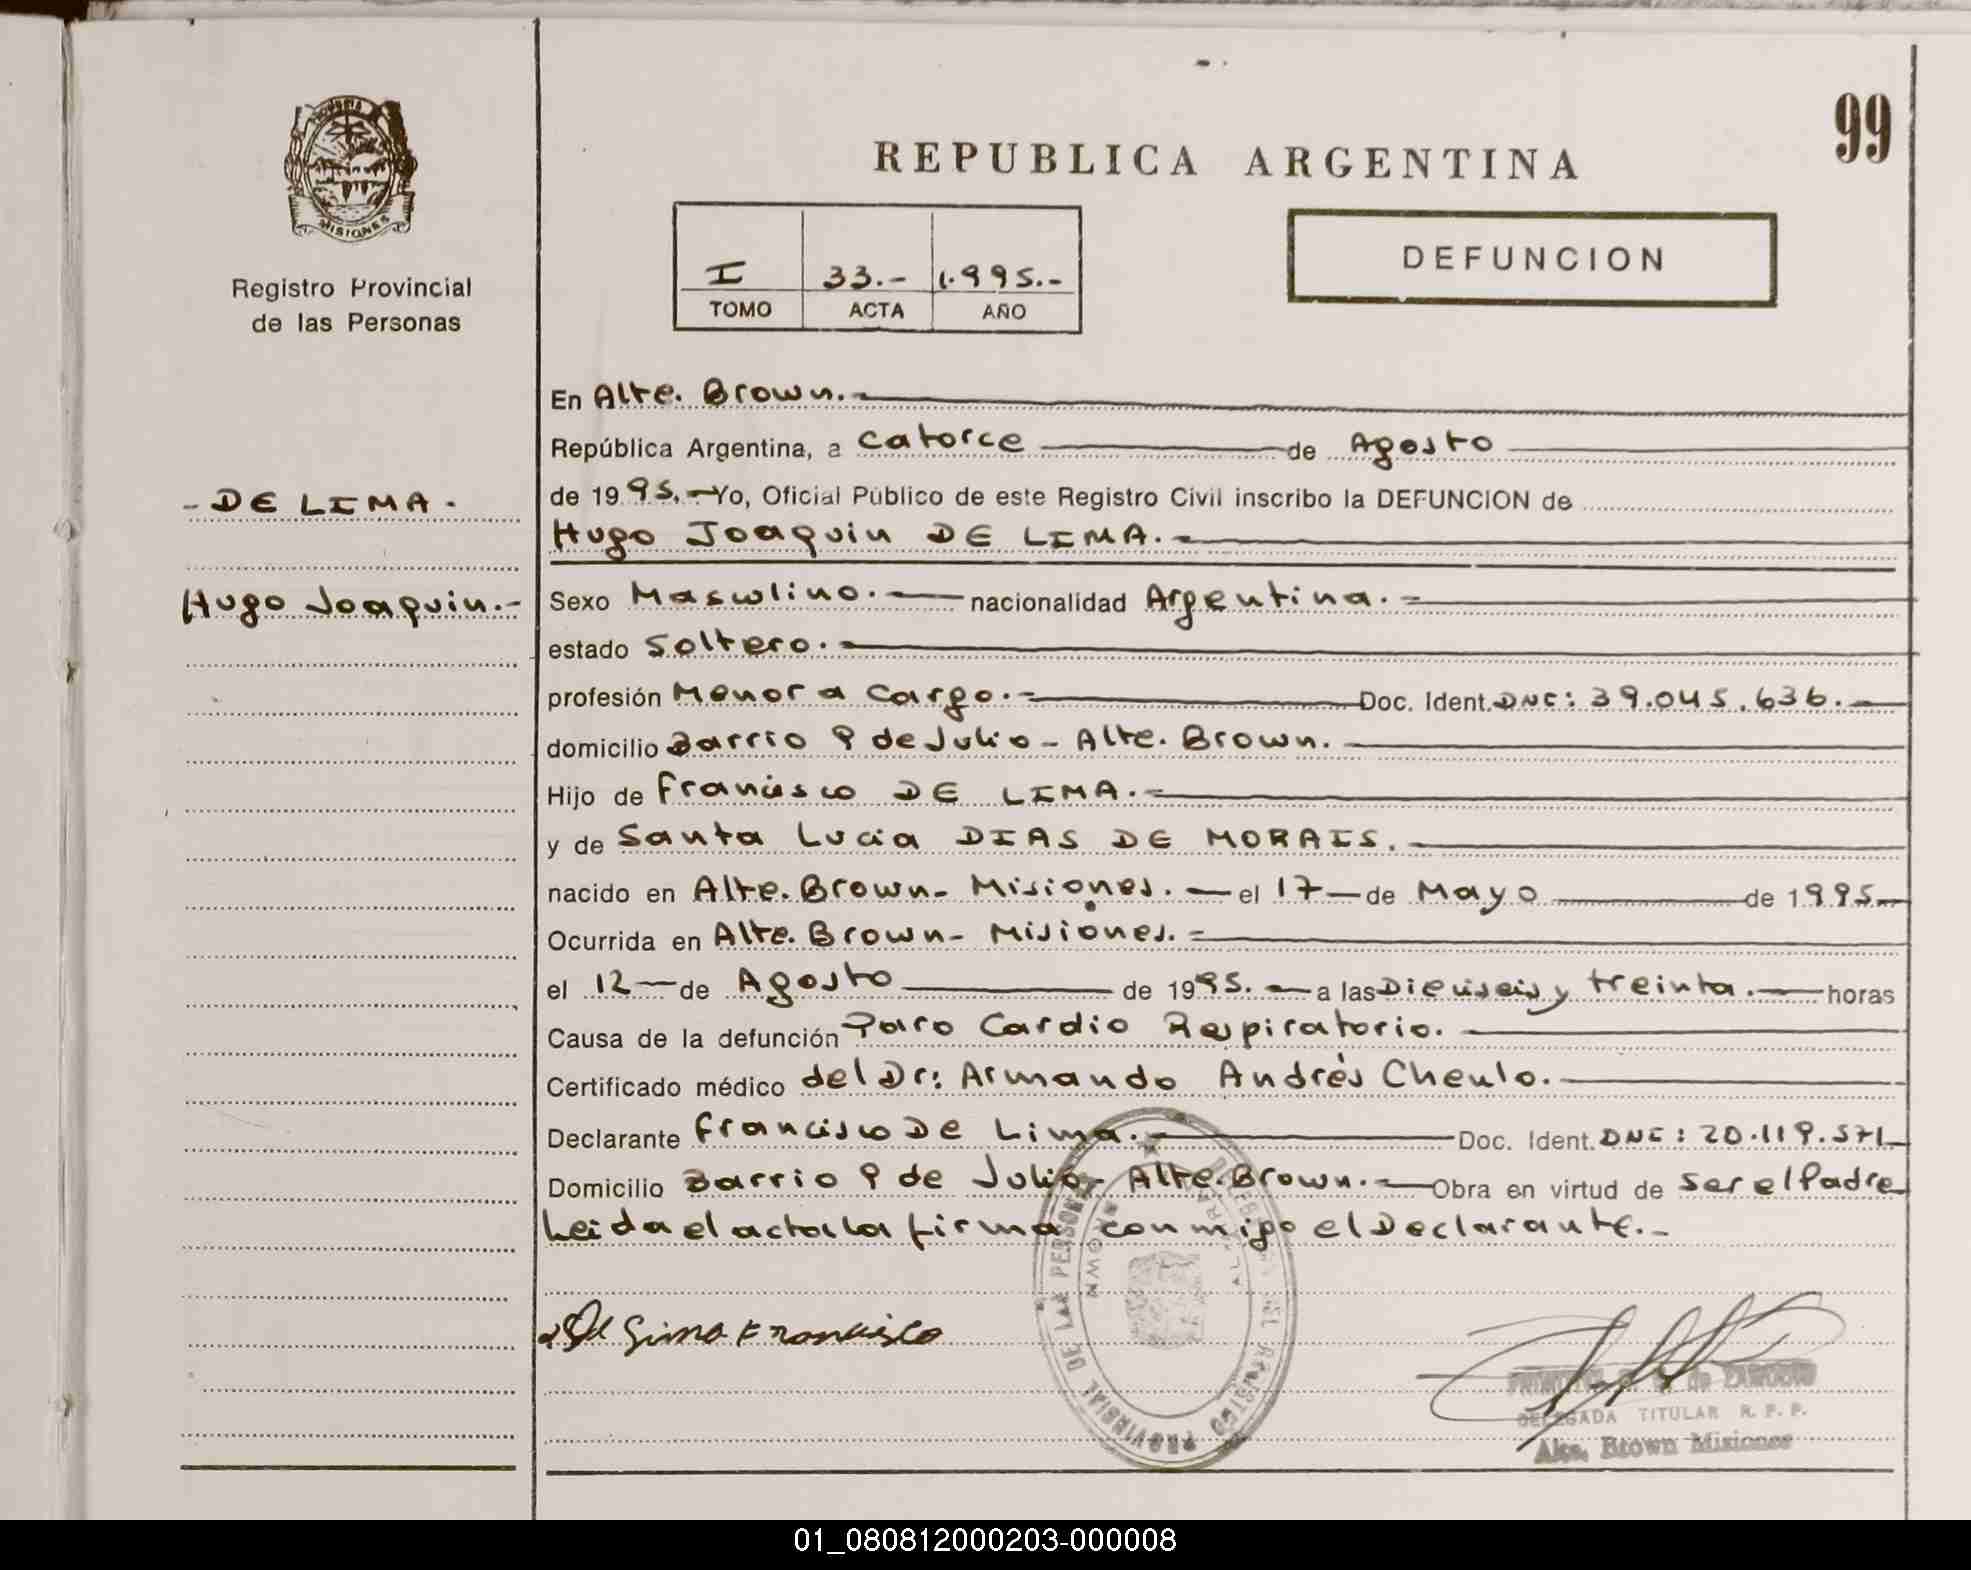 99
PROVINCIA
MISIONES
Registro Provincial
de las Personas
REPUBLICA ARGENTINA
DEFUNCION
I 33.- 1.995.-
TOMO ACTA AÑO
- DE LIMA -
Hugo Joaquin.-
En Alte. Brown.-
República Argentina, a catorce de Agosto
de 1995.- Yo, Oficial Público de este Registro Civil inscribo la DEFUNCION de
Hugo Joaquin DE LIMA.-
Sexo Masculino.- nacionalidad Argentina.-
estado Soltero.-
profesión Menor a cargo.- Doc. Ident. DNI: 39.045.636.-
domicilio Barrio 9 de Julio - Alte. Brown.
Hijo de Francisco DE LIMA.-
y de Santa Lucia DIAS DE MORAIS.
nacido en Alte. Brown - Misiones.- el 17 de Mayo de 1995
Ocurrida en Alte. Brown - Misiones.-
el 12 de Agosto de 1995.- a las Dieciseis y treinta.- horas
Causa de la defunción Paro Cardio Respiratorio.
Certificado médico del Dr: Armando Andrés Cheulo.
Declarante Francisco De Lima.- Doc. Ident. DNI: 20.119.571
Domicilio Barrio 9 de Julio - Alte. Brown.- Obra en virtud de ser el Padre
Leida el acta la firma conmigo el Declarante.-
De Lima Francisco
DELEGACION DEL REGISTRO PROVINCIAL DE LAS PERSONAS
ALTE. BROWN
de
DELEGADA TITULAR R. P. P.
Alte. Brown Misiones
01_080812000203-000008